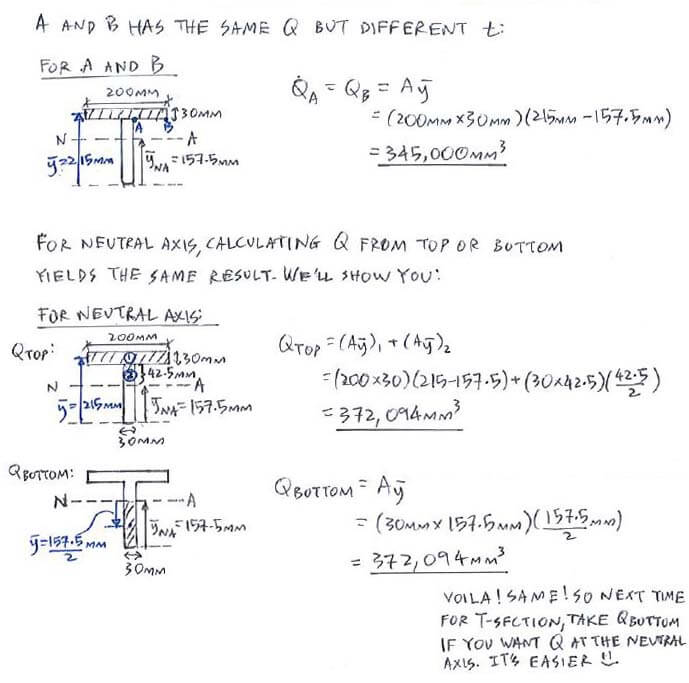 A AND B HAS THE SAME Q BUT DIFFERENT t:
FOR A AND B
200MM
30MM
A B
N A
ȳ=215MM
ȳNA=157.5MM
QA = QB = Aȳ
= (200MM×30MM)(215MM-157.5MM)
= 345,000MM³
FOR NEUTRAL AXIS, CALCULATING Q FROM TOP OR BOTTOM
YIELDS THE SAME RESULT. WE'LL SHOW YOU:
FOR NEUTRAL AXIS:
QTOP:
200MM
① 30MM
② 42.5MM
N A
ȳ=215MM
ȳNA=157.5MM
30MM
QTOP = (Aȳ)₁ + (Aȳ)₂
= (200×30)(215-157.5)+(30×42.5)(42.5/2)
= 372,094MM³
QBOTTOM:
N A
ȳNA=157.5MM
ȳ=157.5MM/2
30MM
QBOTTOM = Aȳ
= (30MM×157.5MM)(157.5/2 MM)
= 372,094MM³
VOILA! SAME! SO NEXT TIME
FOR T-SECTION, TAKE QBOTTOM
IF YOU WANT Q AT THE NEUTRAL
AXIS. IT'S EASIER